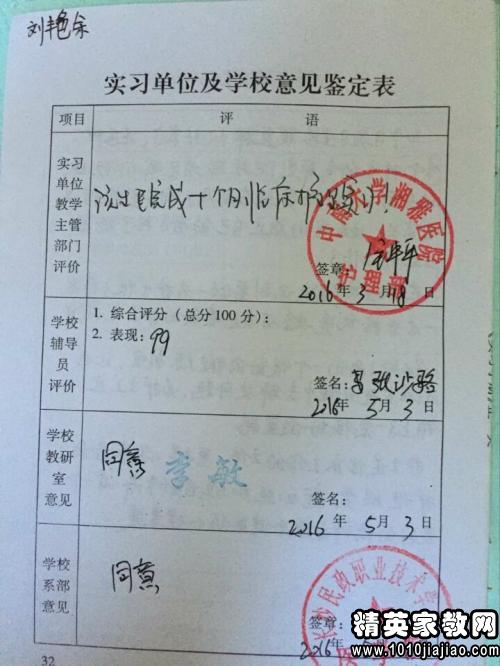 刘艳余
实习单位及学校意见鉴定表
项目 评语
实习
单位
教学
主管
部门
评价
该生完成十个月临床病
中南大学湘雅医院
护理部
签章:
2016年3月18日
学校
辅导
员
评价
1. 综合评分(总分100分):
2. 表现: 99
签名:
2016年5月3日
学校
教研
室
意见
同意
李敏
签名:
2016年5月3日
学校
系部
意见
同意
长沙民政职业技术学
签章:
2016年
32
精英家教网
www.1010jiajiao.com